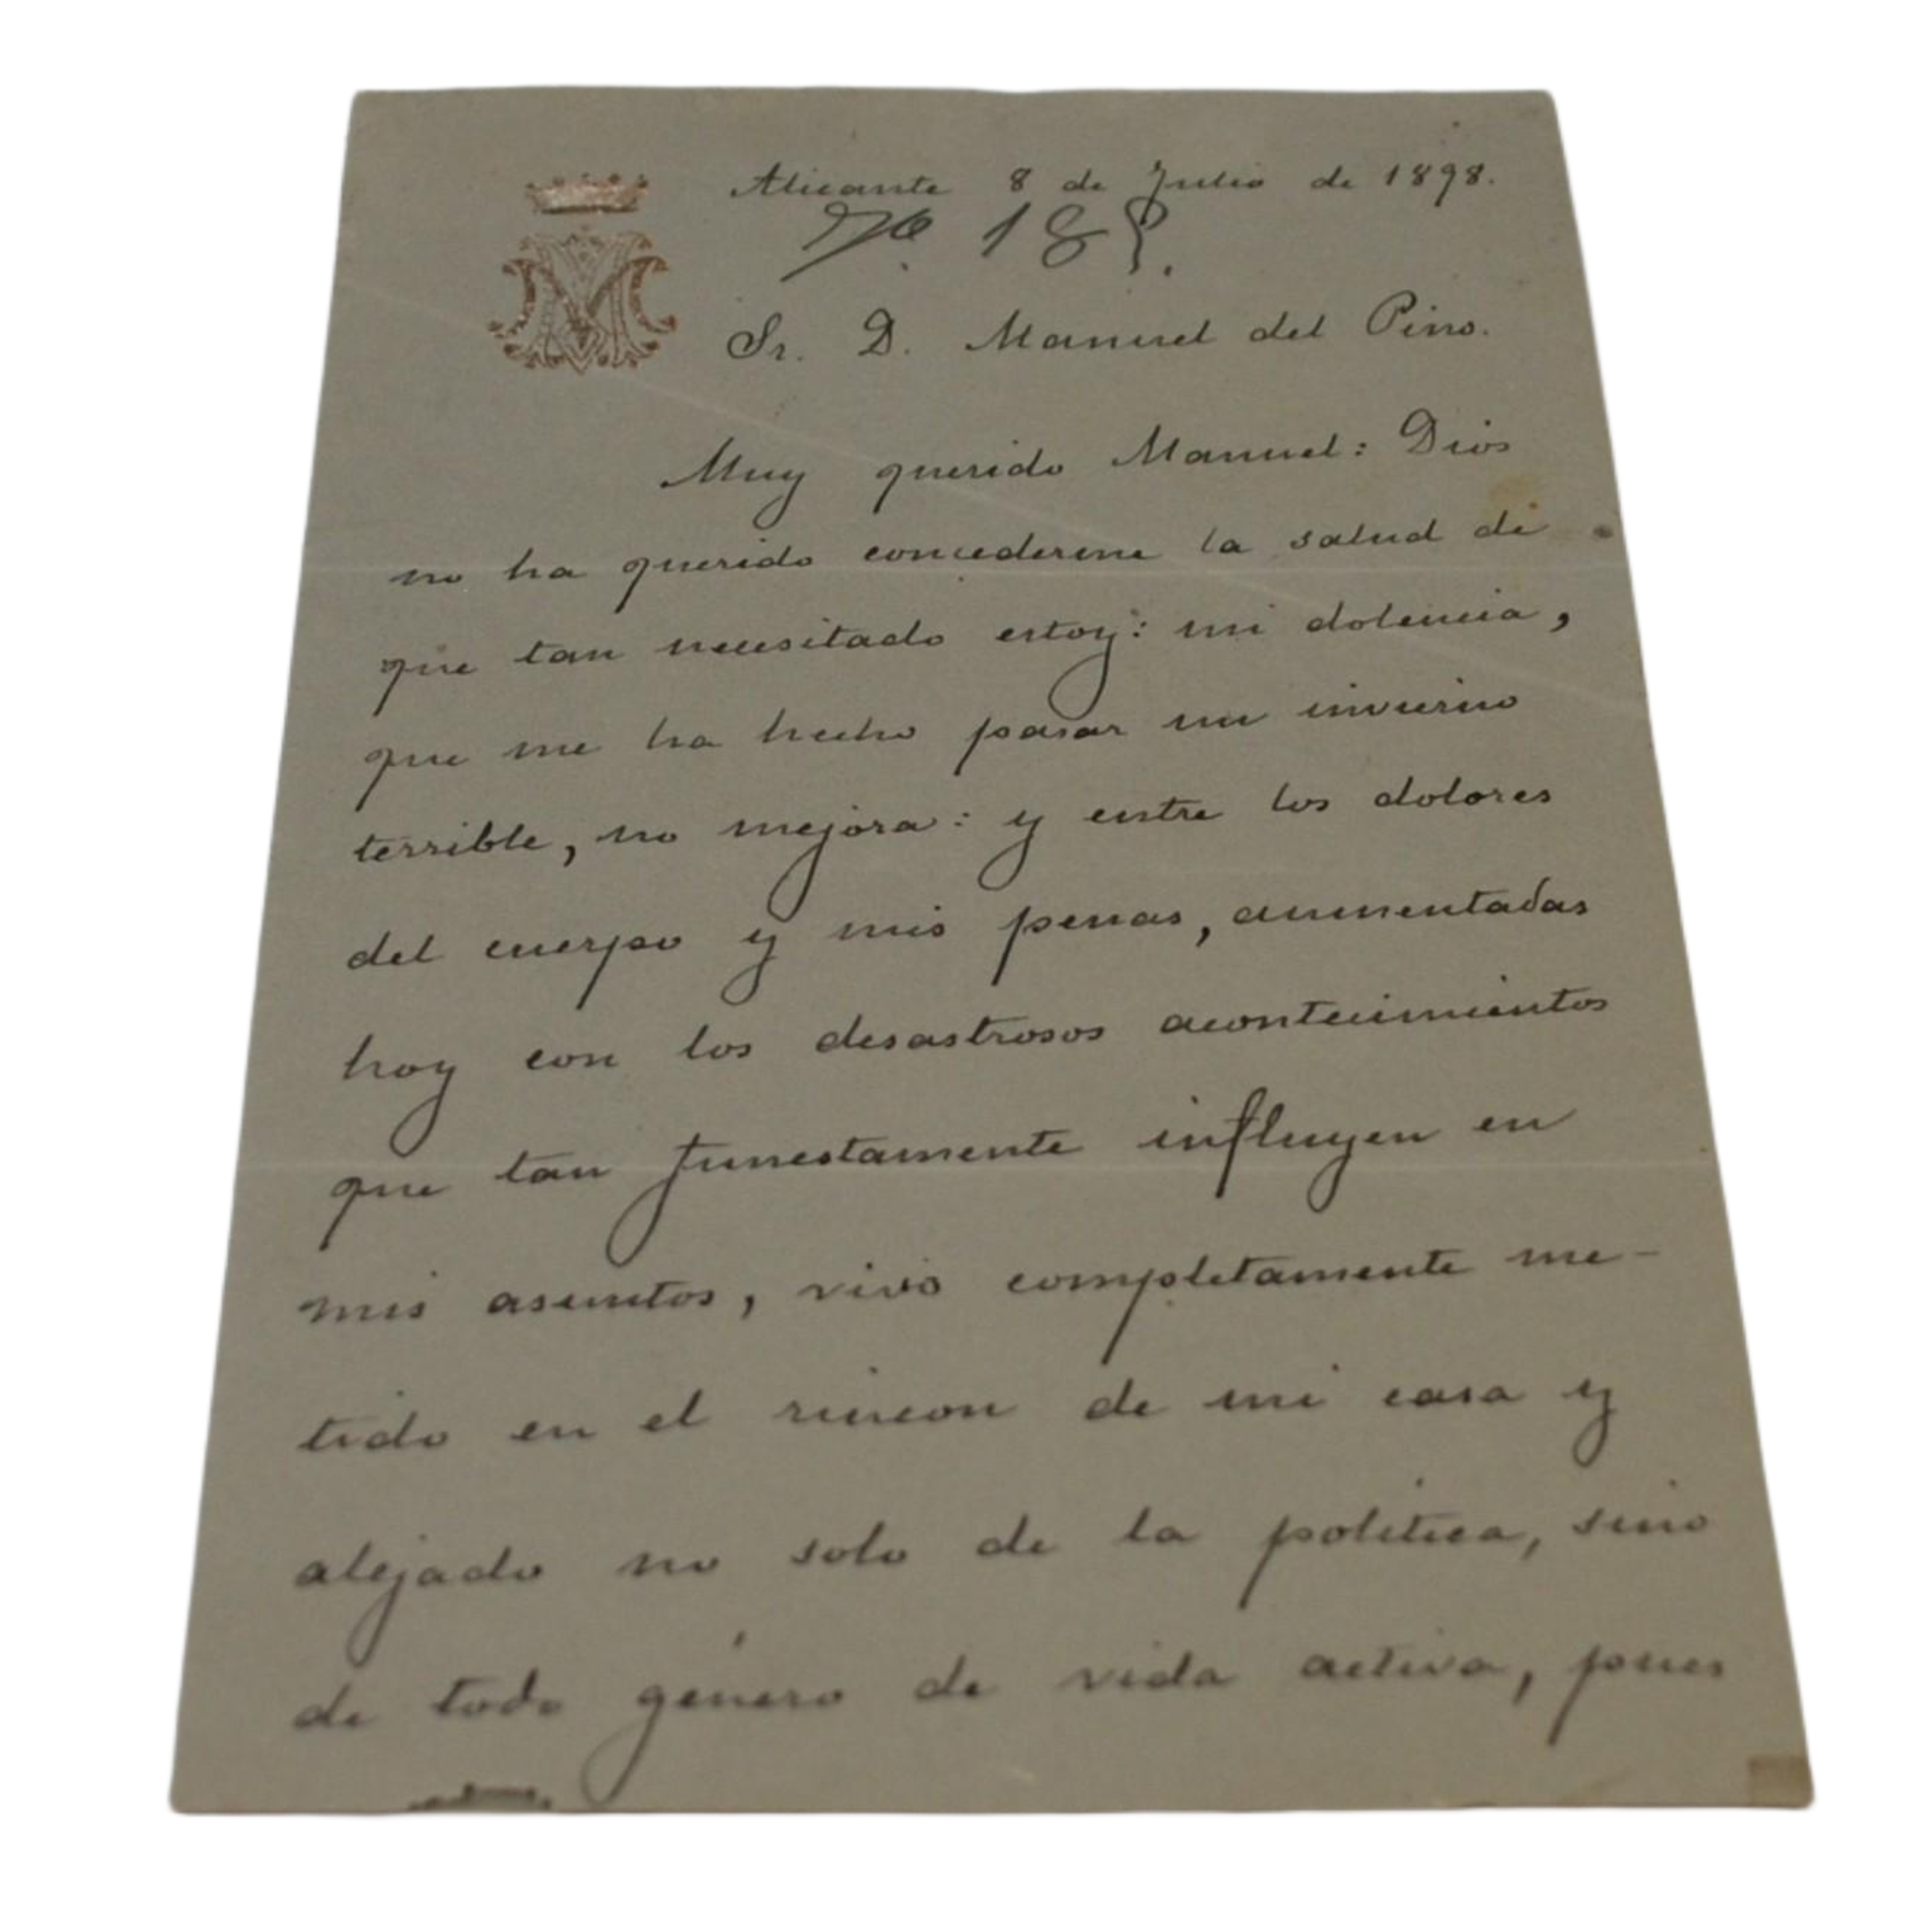 Alicante 8 de Julio de 1898.
Sr. D. Manuel del Pino.
Muy querido Manuel: Dios
no ha querido concederme la salud de
que tan necesitado estoy: mi dolencia,
que me ha hecho pasar un invierno
terrible, no mejora: y entre los dolores
del cuerpo y mis penas, aumentadas
hoy con los desastrosos acontecimientos
que tan funestamente influyen en
mis asuntos, vivo completamente me-
tido en el rincon de mi casa y
alejado no solo de la política, sino
de todo género de vida activa, pues